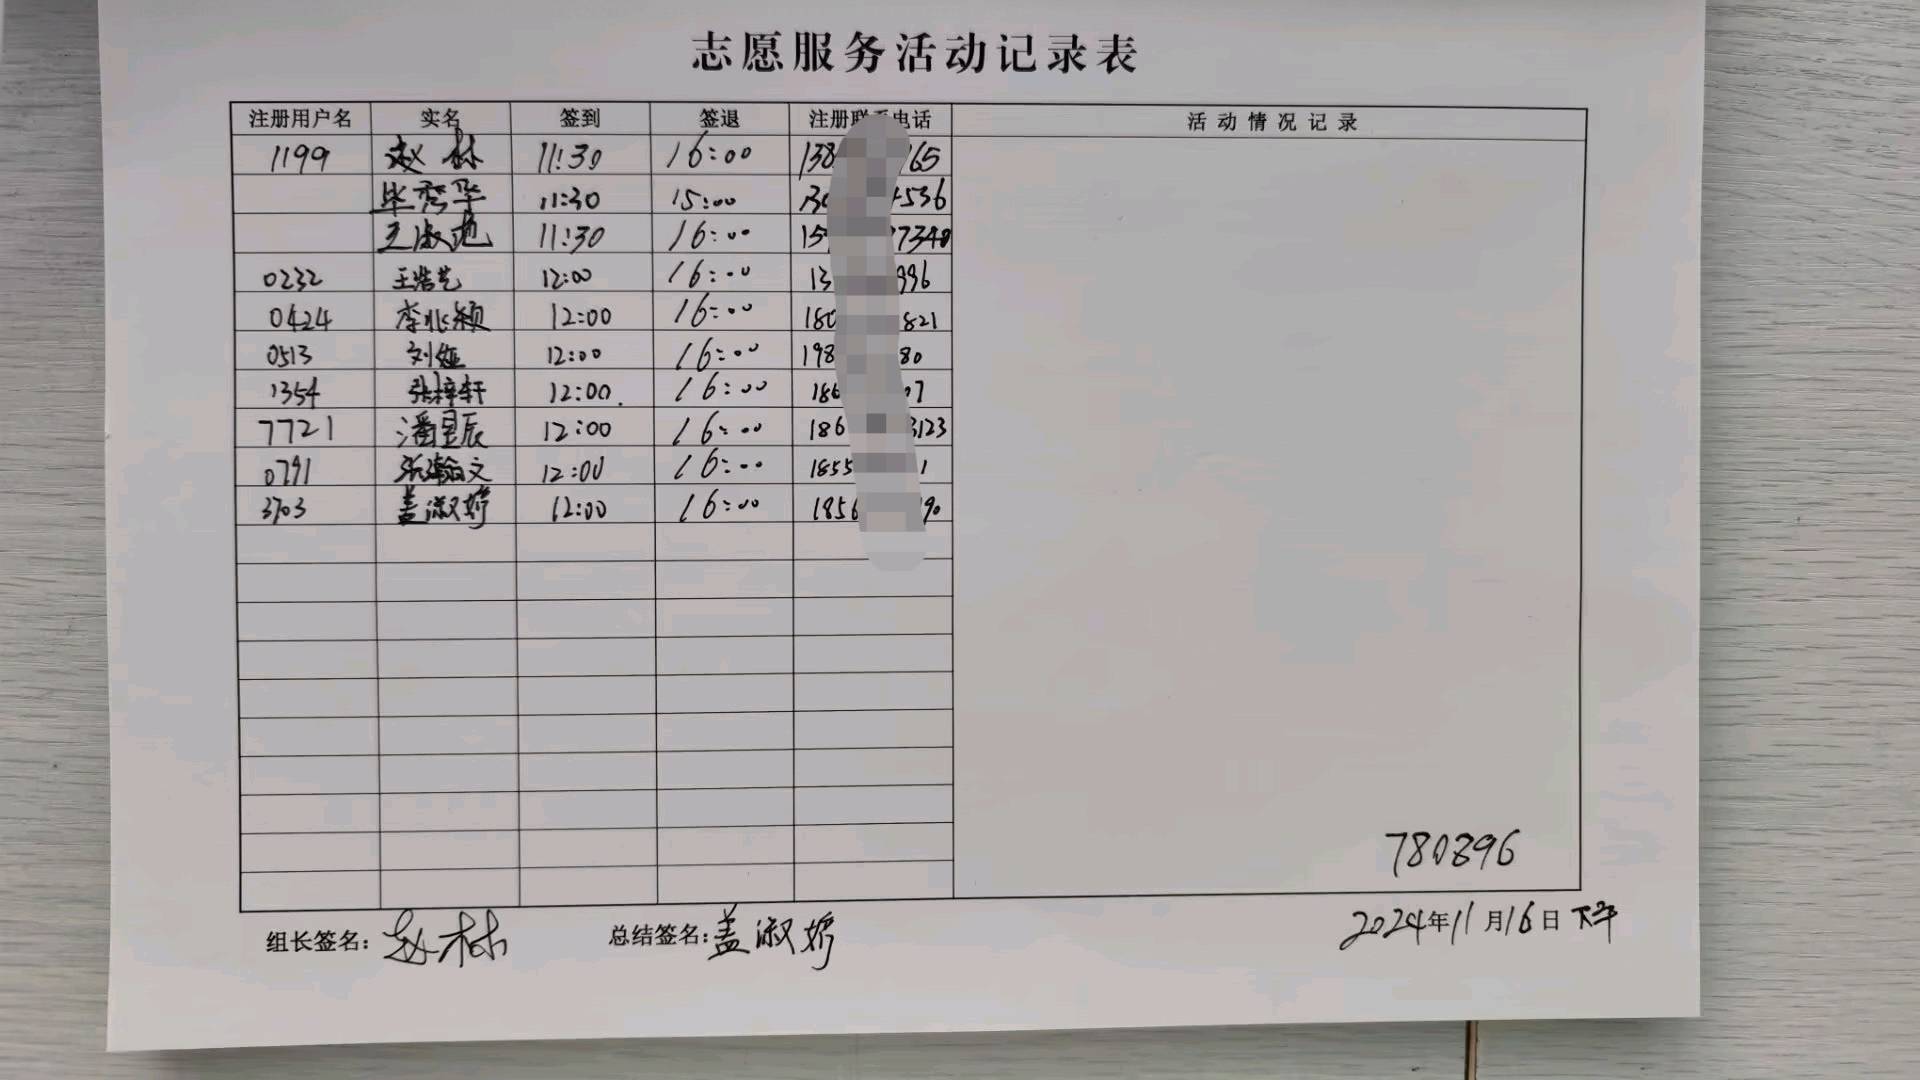 志愿服务活动记录表
注册用户名 实名 签到 签退 注册联系电话 活动情况记录
1199 赵林 11:30 16:00 138 165
毕秀华 11:30 15:00 130 4536
王淑苑 11:30 16:00 15 7340
0232 王浩艺 12:00 16:00 13 996
0424 李兆颖 12:00 16:00 180 821
0513 刘娅 12:00 16:00 198 80
1354 张梓轩 12:00. 16:00 186 07
7721 潘星辰 12:00 16:00 186 3123
0791 张瀚文 12:00 16:00 1855 1
3703 盖淑婷 12:00 16:00 1856 90
780896
组长签名：赵林 总结签名：盖淑婷 2024年11月16日 下午